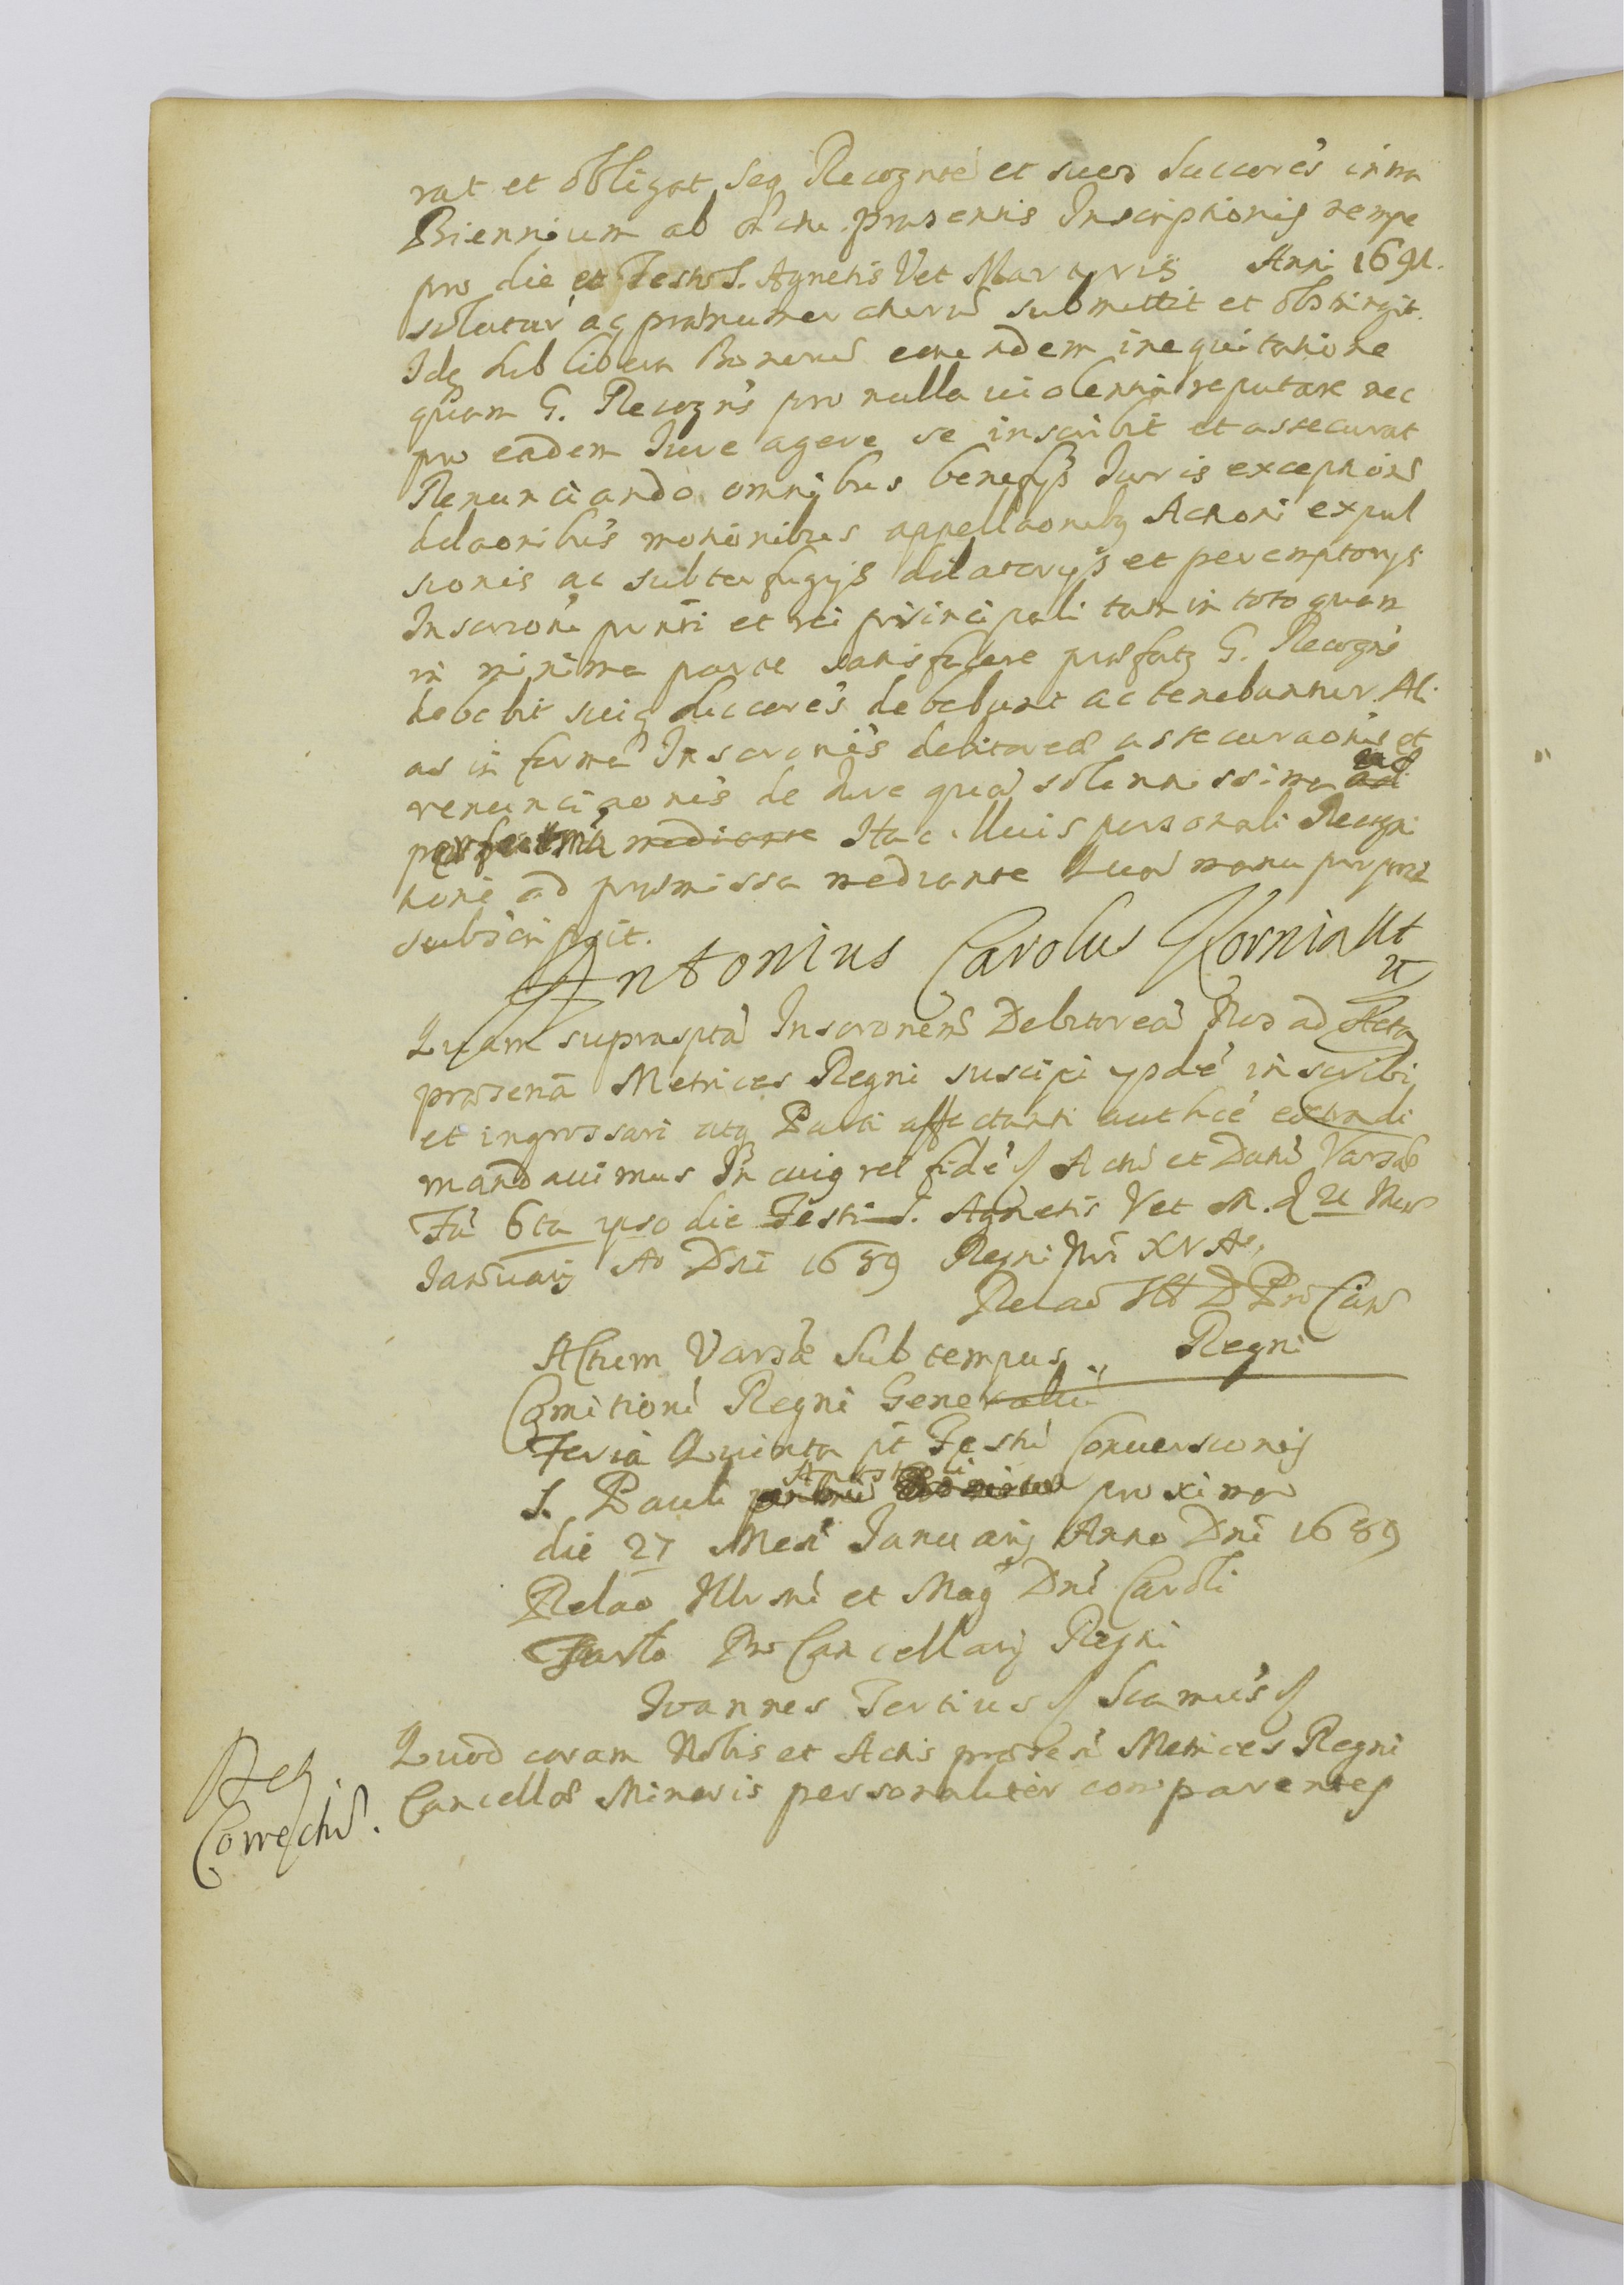 rat et obligat seq Recognte et suos Succores intra
Biennium ab actu praesentis Inscriptionis nempe
pro die et Festo S. Agnetis V et Martyris Anni 1691.
soluturu ac pranumeraturu submittit et obstringit.
Idq sub libera Bonorum eorundem inequitatione
quam G. Recogns pro nulla violentia reputare nec
pro eadem Iure agere se inscribit et assecurat
Renunciando omnibus benefijs Iuris exceptions
dilaonibus motionibus appellaonibq Actioni expul
sionis ac subterfugijs dilatorijs et peremptorijs
Inscrioni pnti et rei principali tam in toto quam
in minima parte satisfacere prafatq G. Recogns
debebit suiq Succores debebunt ac tenebuntur. Ali
as in forma Inscronis debitorea assecuraonis et
renunciaonis de Iure qua solennissima
mediante Hac illius personali Recogni
tione ad praemissa mediante Qua manu propria
subscripsit.
Antonius Carolus Korniakt
Quam supraspta Inscronem Debitorea Nos ad Acta
praesena Metrices Regni suscipi ypdé inscribi
et ingrossari atq Parti affectanti authce extradi
mandavimus In cuiq rei fidé Actu et Datu Varsae
Fa 6ta ypso die Festi S. Agnetis V et M. d 21 Mens
Januarij Ao Dni 1689 Regni Nri XV Ao.
Relao Ill D Pro Can
Regni
Actum Varsae Sub tempus
Comitioru Regni Generaliu
Feria Quinta pt Festu Conversionis
S. Pauli Apostoli proxima
die 27 Mens Januarij Anno Dni 1689
Relao Illrsmi et Mag Dni Caroli
Tarlo Pro Cancellarij Regni
Ioannes Tertius Scamus
Quod coram Nobis et Actis praesen Metrices Regni
Cancellae Minoris personaliter comparentes
Rex
Correctu.